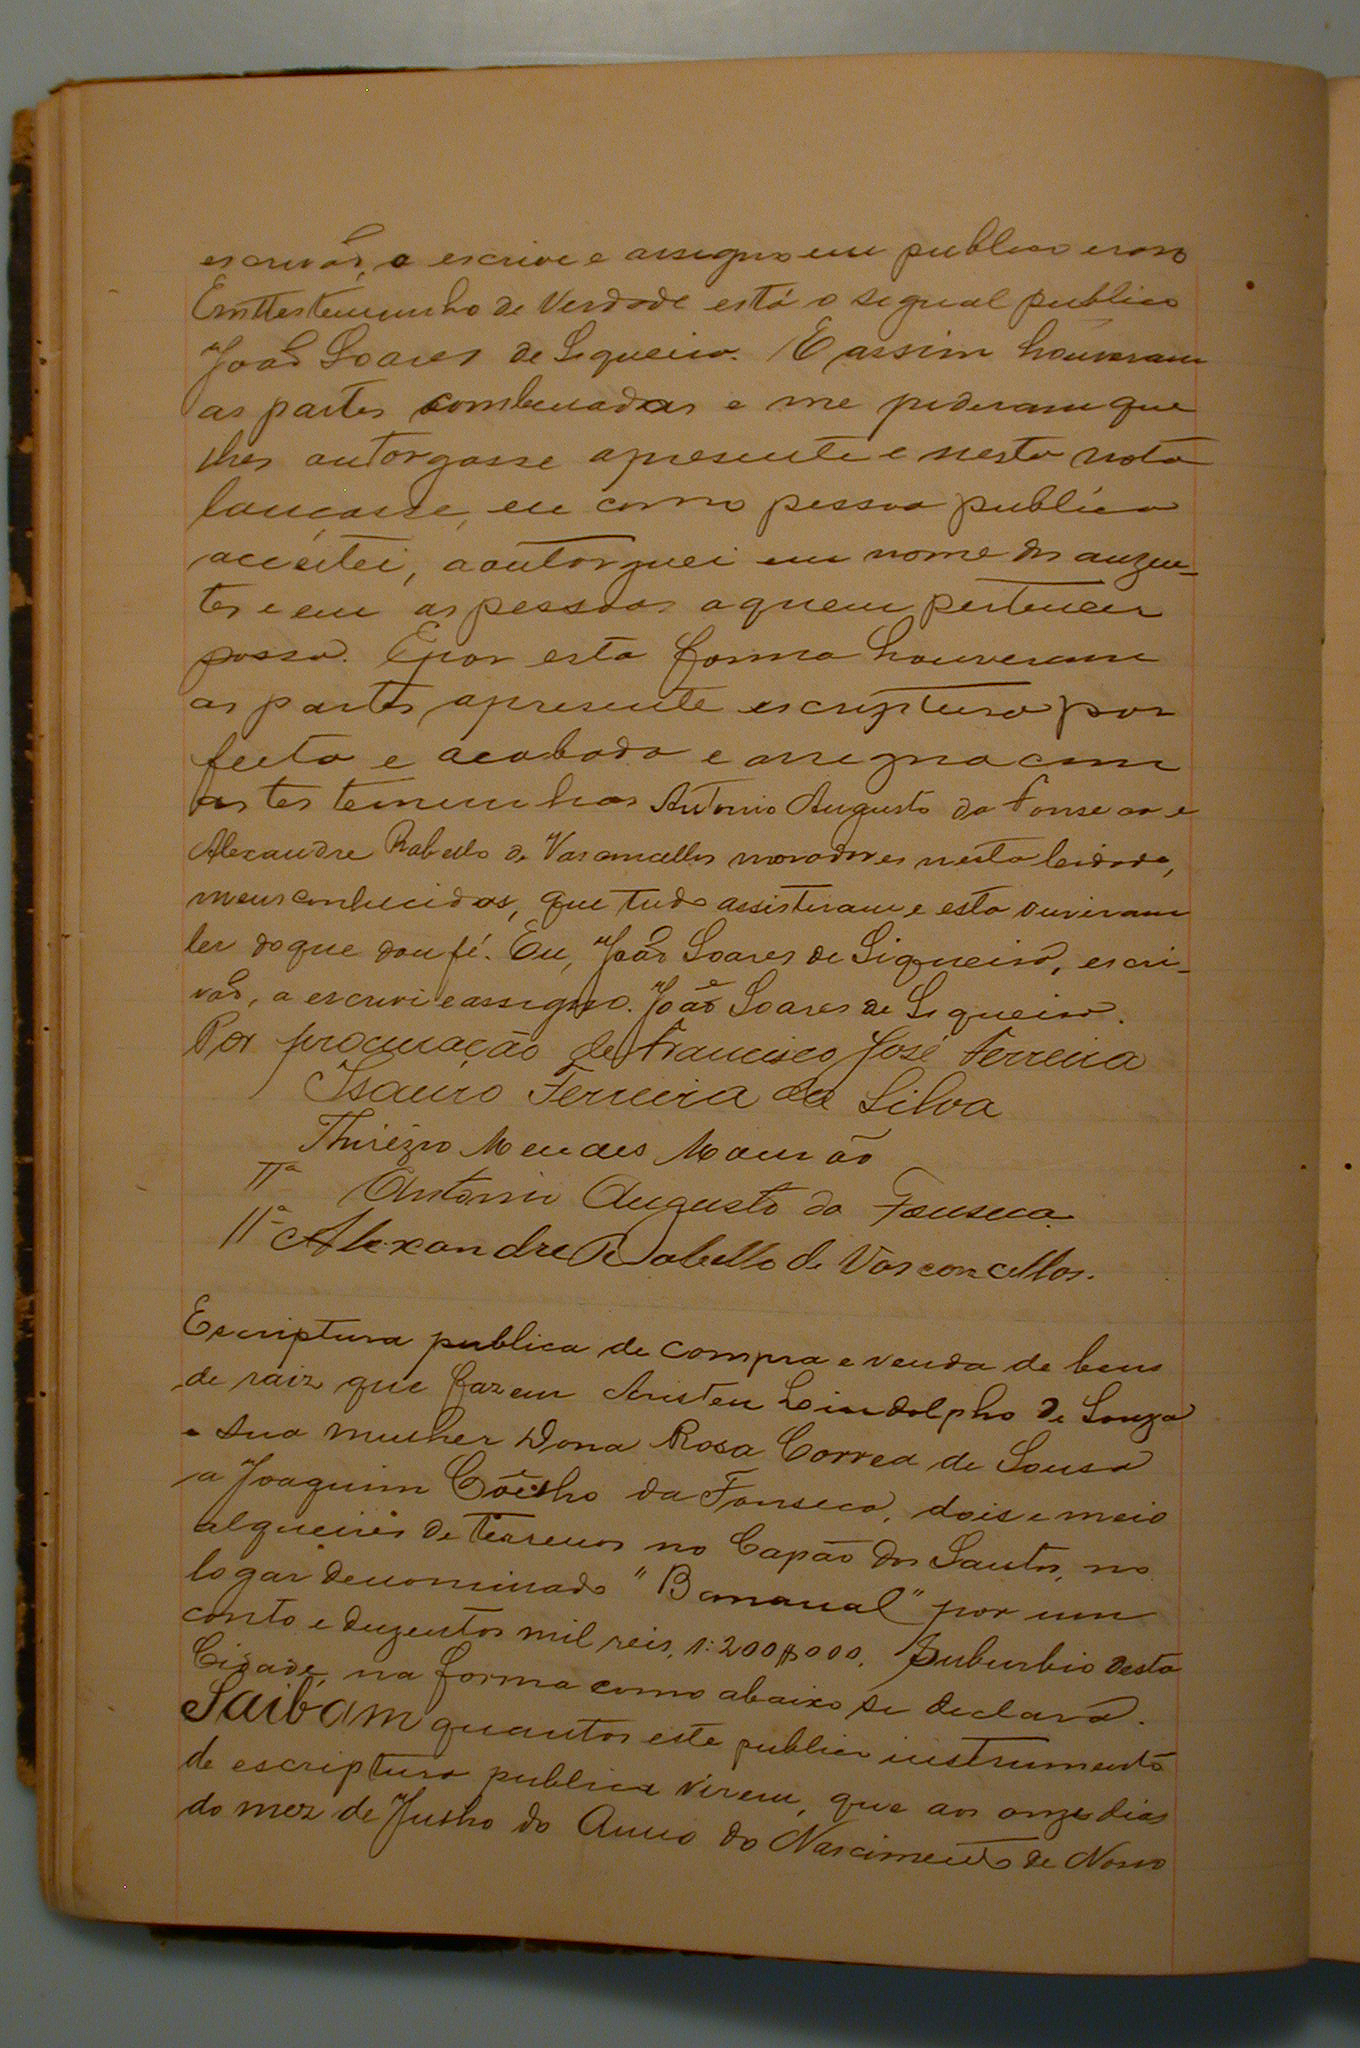 escrivão, o escrivi e assigno em publico e raso
Em testemunho de Verdade está o signal publico
João Soares de Siqueira. E assim houveram
as partes combenadas e me pederam que
lhes outorgasse apresente e nesta nota
lançasse, eu como pessoa publica
acceitei, a outorguei em nome dos auzen-
tes e em as pessoas a quem pertencer
possa. E por esta forma houveram
as partes apresente escriptura por
feita e acabada e assignacom
as testemunhas Antonio Augusto da Fonseca e
Alexandre Rabello de Vasconcellos moradores nesta Cidade,
meus conhecidos, que tudo assisteram e esta ouviram
ler do que dou fé. Eu, João Soares de Siqueira, escri-
vão, a escrivi e assigno. João Soares de Siqueira.
Por procuração de Francisco José Ferreira
Isauro Ferreira da Silva
Mendes
Tª Antonio Augusto da Fonseca
Tª Alexandre Rabello de Vasconcellos.
Escriptura publica de compra e venda de bens
de raiz que fazem Aristeu Lindolpho de Souza
e sua mulher Dona Rosa Correa de Sousa
a Joaquim Coêlho da Fonseca, dois e meio
alqueires de terrenos no Capão dos Santos, no
logar denominado "Bananal" por um
conto e duzentos mil reis, 1:200$000. Suburbio desta
Cidade, na forma como abaixo se declara.
Saibam quantos este publico instrumento
de escriptura publica virem, que aos onze dias
do mez de Julho do Anno do Nascimento de Nosso